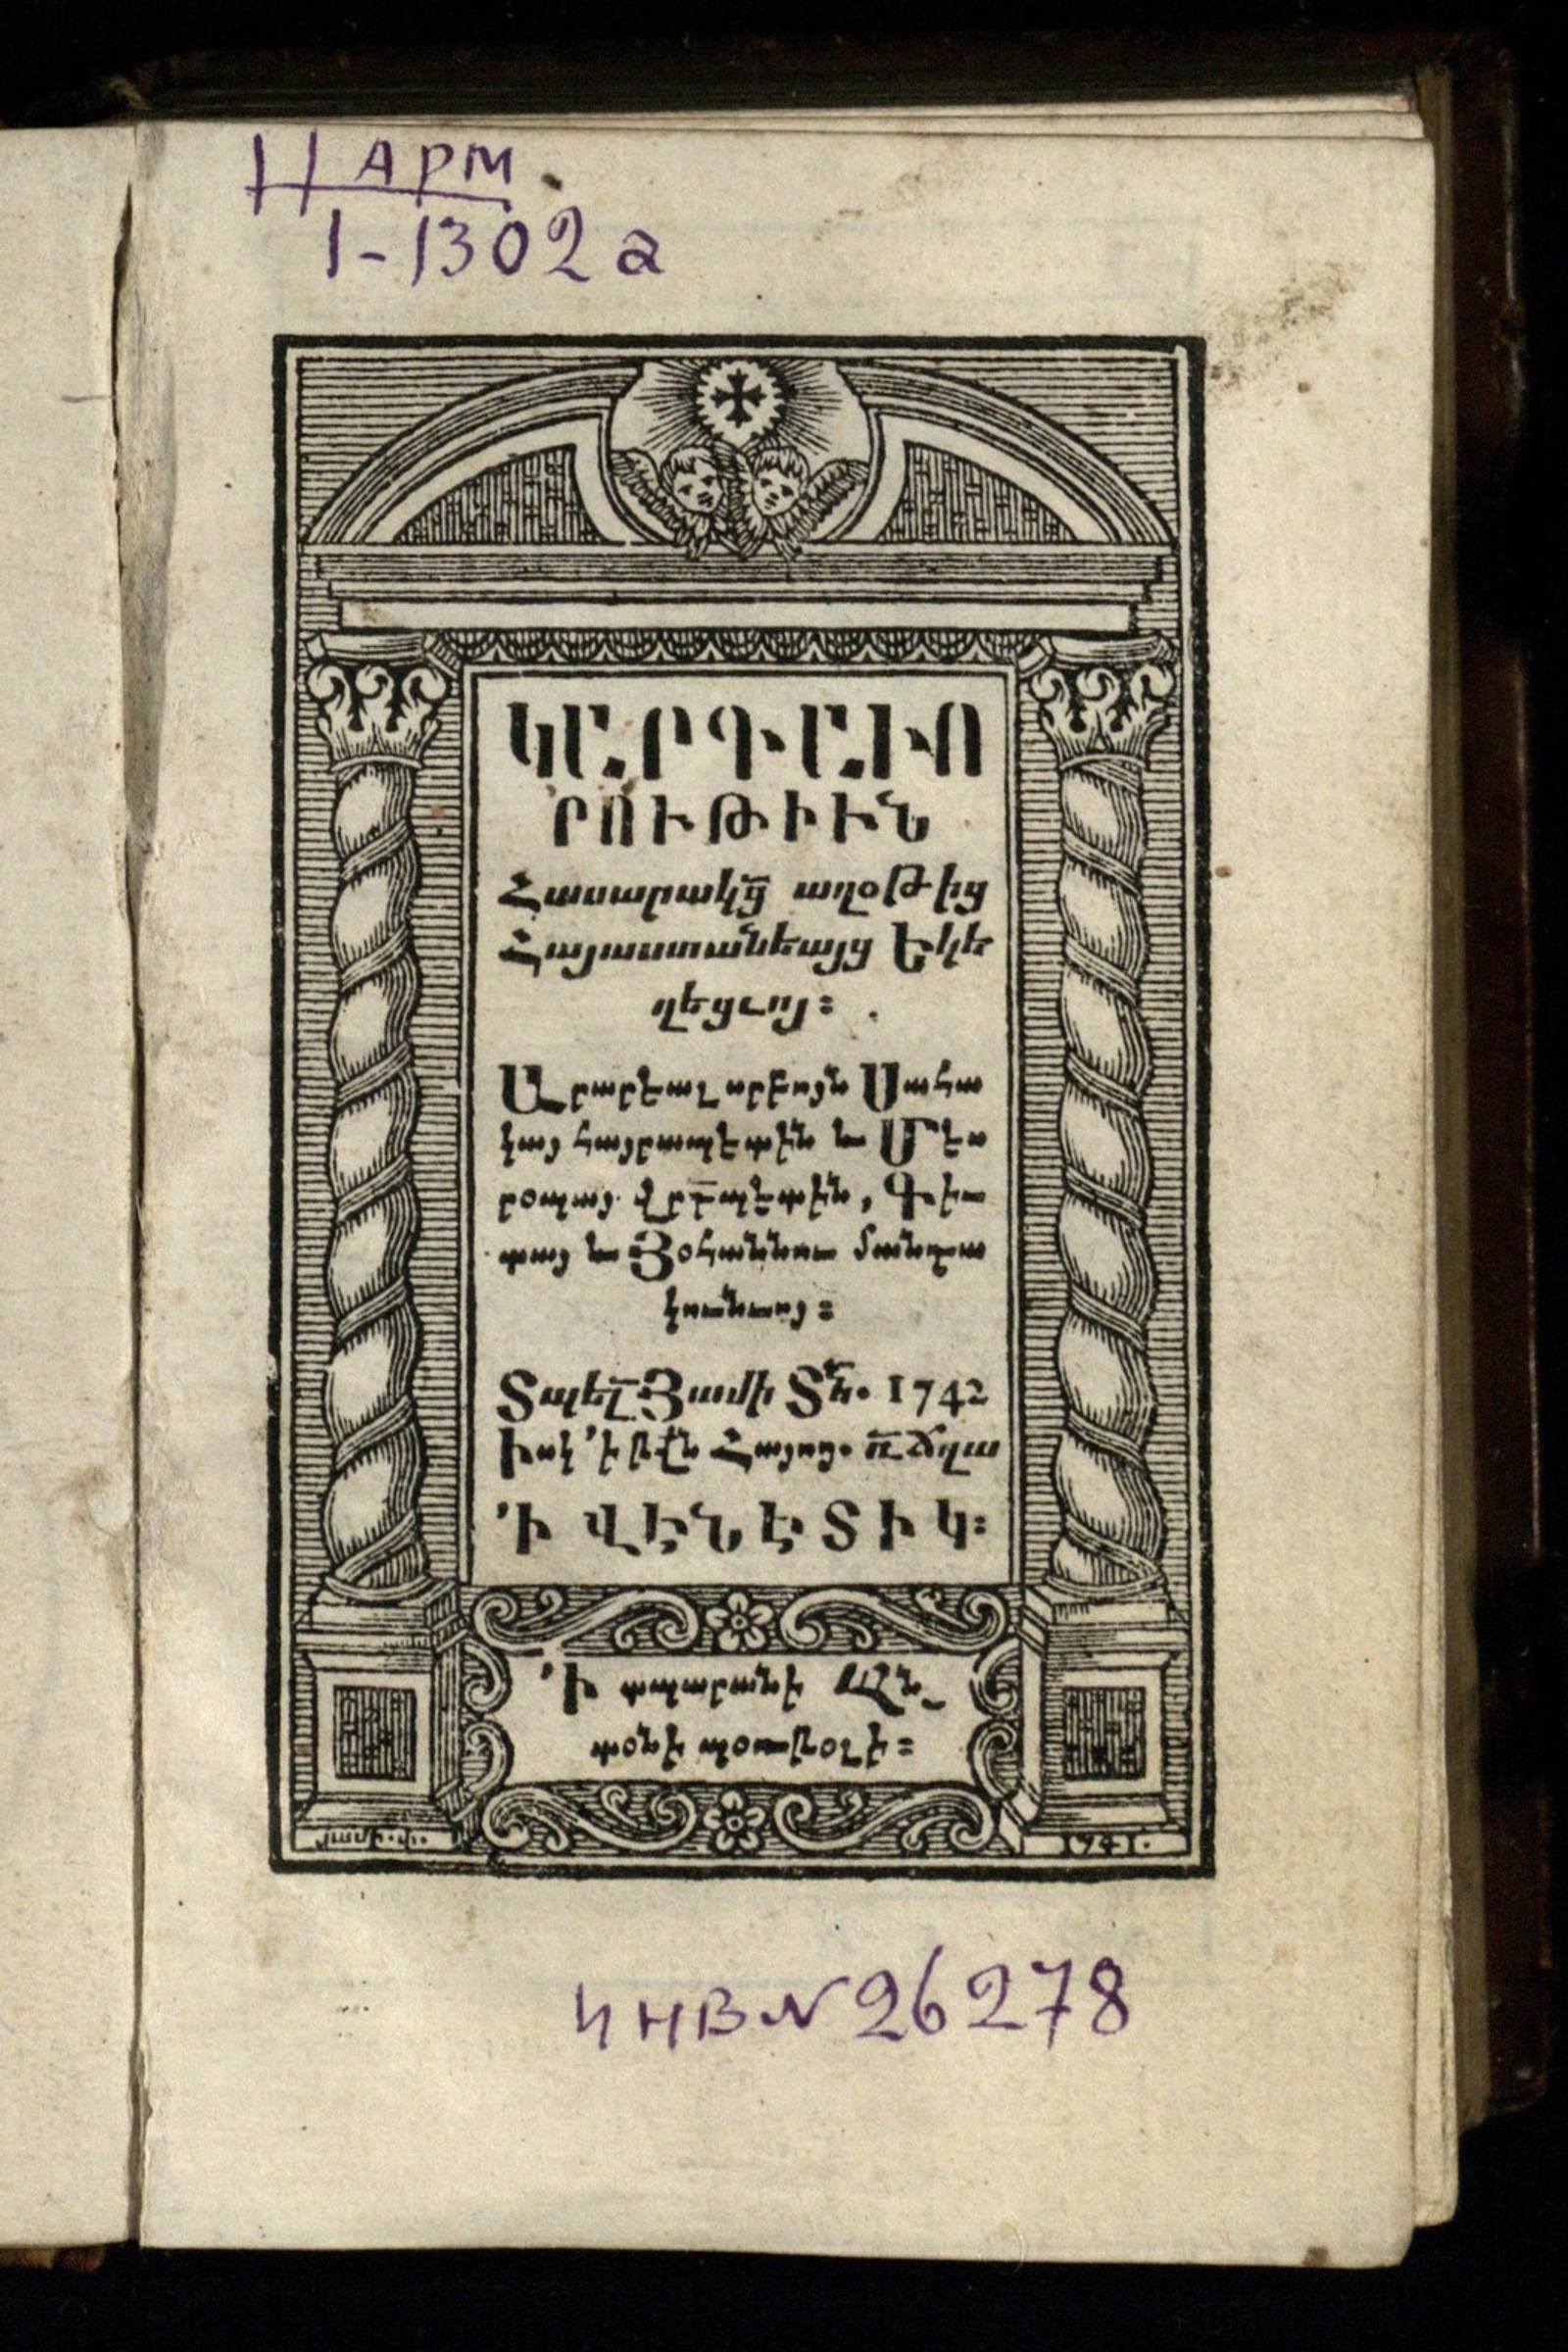 II АРМ
1-1302 а
ԿԱՐԳԱՒՈ
ՐՈՒԹԻՒՆ
Հասարակց̃ աղօթից
Հայաստանեայց Եկե
ղեցւոյ։
Արարեալ սրբոյն Սահա
կայ հայրապետին և Մես
րօպայ վրդ̃պետին, Գիւ
տայ և Յօհաննու մանդա
կունւոյ։
Տպել̃ Յամի Տն̃. 1742
Իսկ ՚ի թվ̃ն Հայոց. ռ̃ճղա
՚Ի ՎԵՆԵՏԻԿ։
՚Ի տպարանի
տօնի պօռթօլի։
յամի.
1741.
ИНВ N 26278